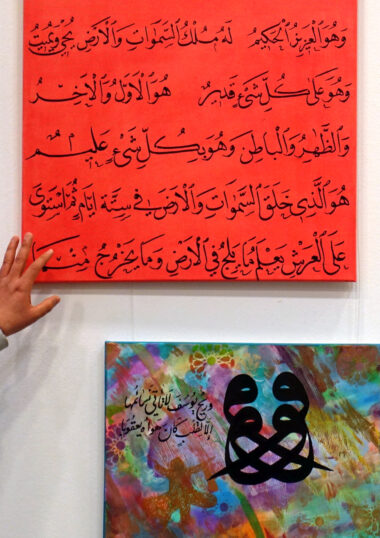 وَهُوَ الْعَزِيزُ الْحَكِيمُ لَهُ مُلْكُ السَّمٰوَاتِ وَالْأَرْضِ يُحْيِي وَيُمِيتُ
وَهُوَ عَلَى كُلِّ شَيْءٍ قَدِيرٌ هُوَ الْأَوَّلُ وَالْآخِرُ
وَالظّٰهِرُ وَالْبَاطِنُ وَهُوَ بِكُلِّ شَيْءٍ عَلِيمٌ
هُوَ الَّذِي خَلَقَ السَّمٰوَاتِ وَالْأَرْضَ فِي سِتَّةِ أَيَّامٍ ثُمَّ اسْتَوَى
عَلَى الْعَرْشِ يَعْلَمُ مَا يَلِجُ فِي الْأَرْضِ وَمَا يَخْرُجُ مِنْهَا
وريح يوسف لا تأتي نسائمها
إلا لقلب كان هواه يعقوبا